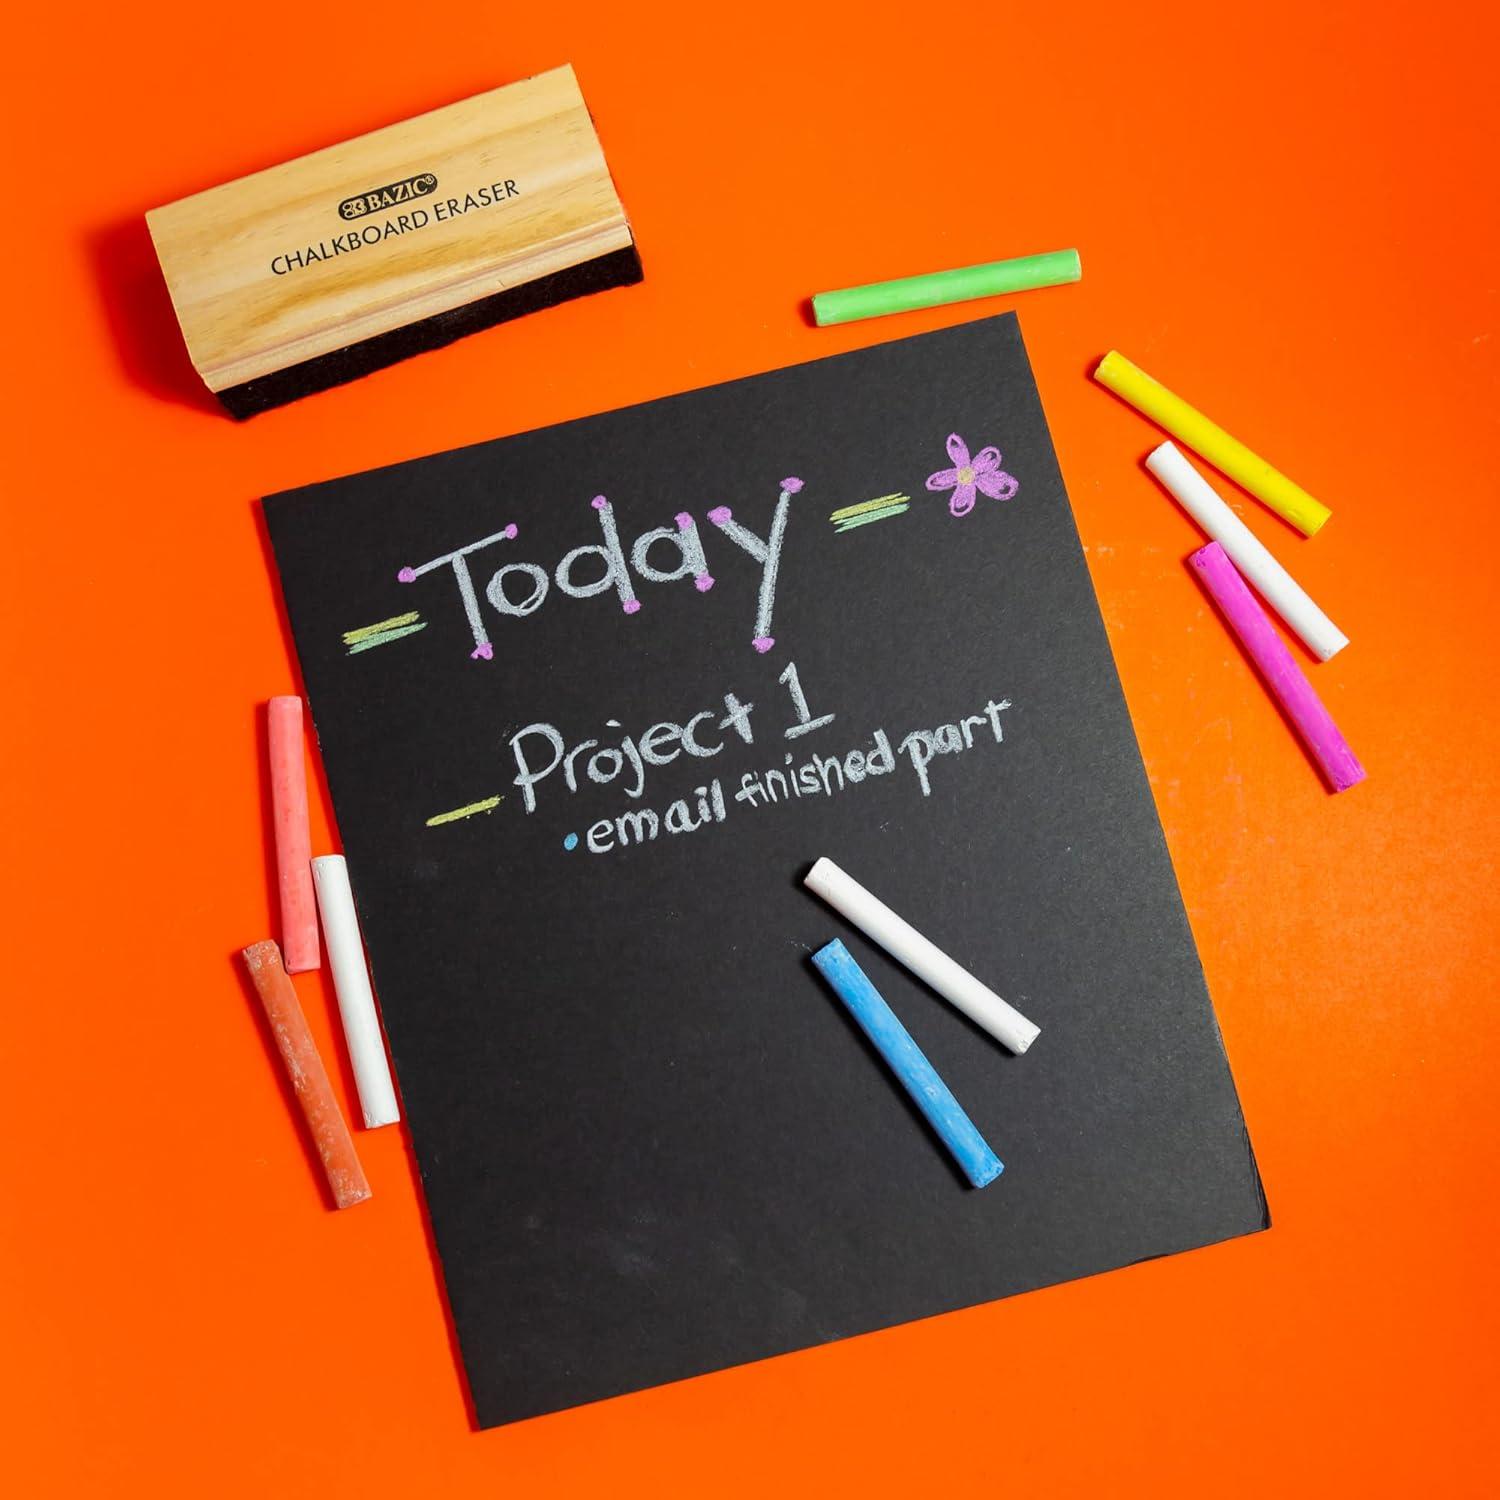 BAZIC®
CHALKBOARD ERASER
Today
Project 1
• email finished part